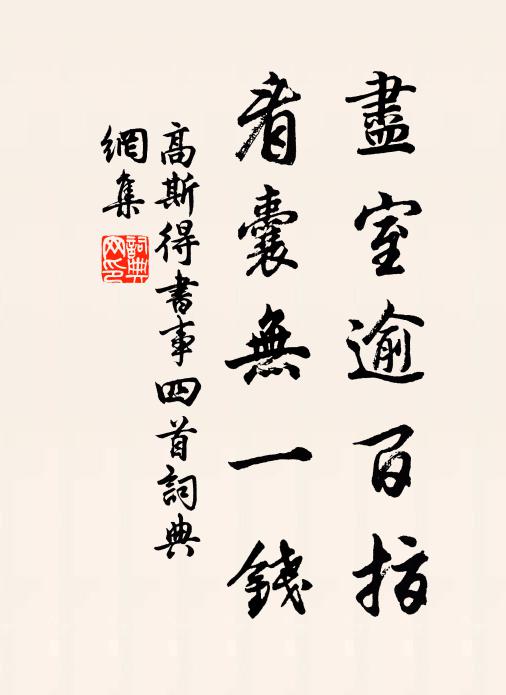 盡室逾百指
看囊無一錢
高斯得書事四首詞典
網集
詞典網印